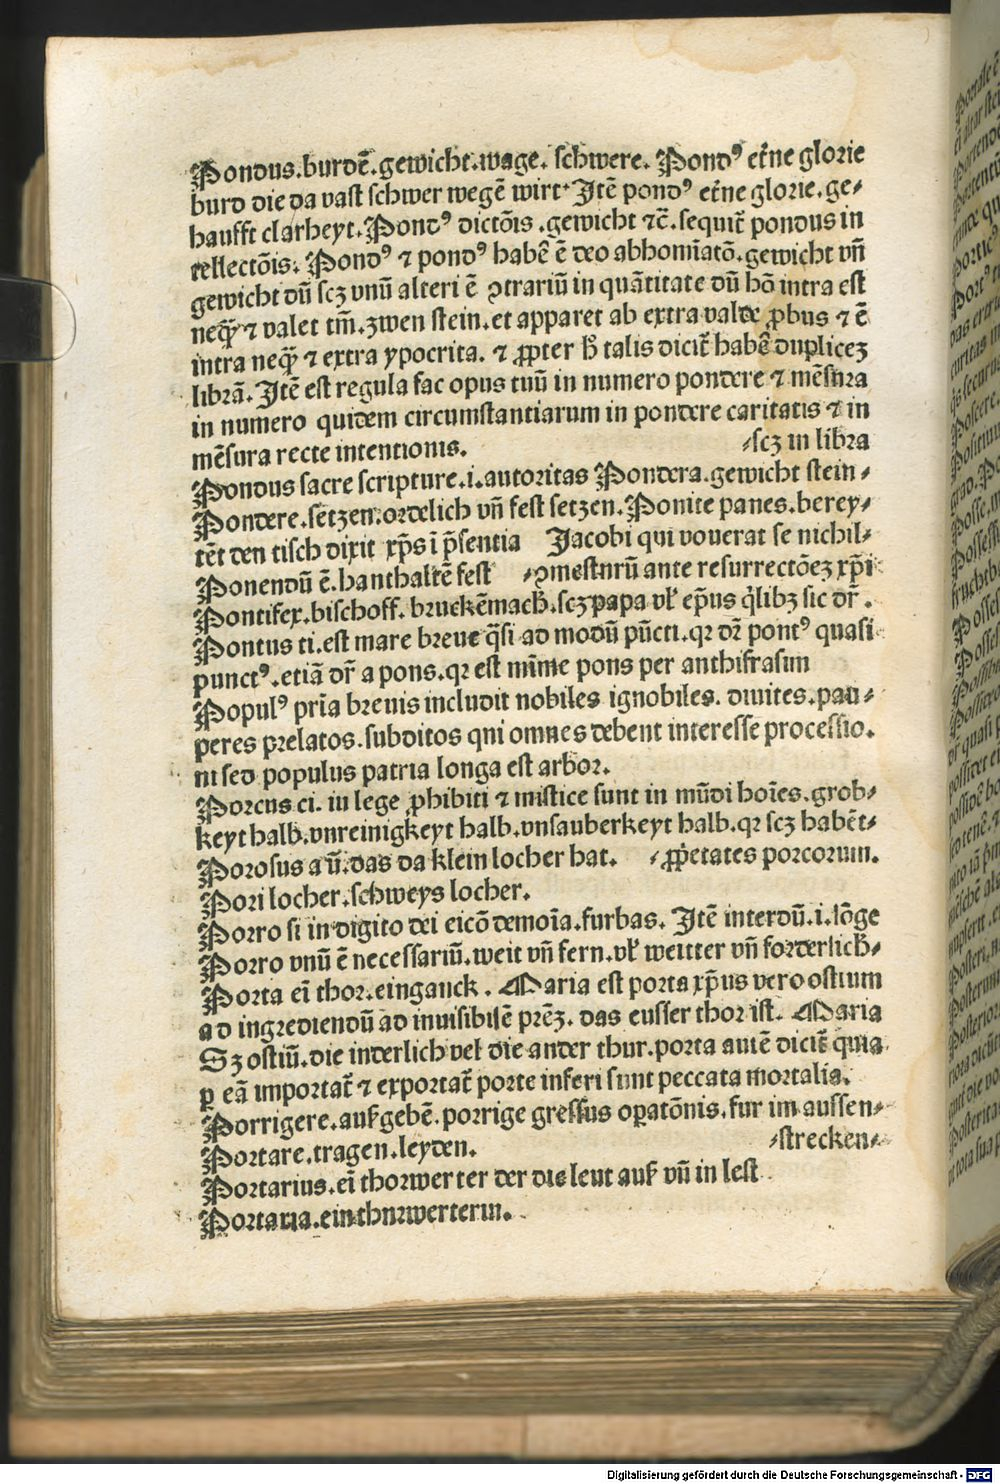 Pondus.burdē.gewicht.wage. schwere. Pondꝰ et̄ne glorie
burd die da vast schwer wegē wirt. Itē pondꝰ et̄ne glorie.ge⸗
haufft clarheyt. Pondꝰ dictōis .gewicht ⁊c̄. sequit̄ pondus in
rellectōis. Pondꝰ ⁊ pondꝰ habē ē deo abhomiatō.gewicht vn̄
gewicht dū scꝫ vnū alteri ē ꝯtrariū in quātitate dū hō intra est
neq̄ꝫ ⁊ valet tm̄.zwen stein.et apparet ab extra valde ꝓbus ⁊ ē
intra neq̄ꝫ ⁊ extra ypocrita. ⁊ ꝓpter h̄ talis dicit̄ habē duplicez
librā. Itē est regula fac opus tuū in numero pondere ⁊ mēsura
in numero quidem circumstantiarum in pondere caritatis ⁊ in
mēsura recte intentionis. ⸗scꝫ in libra
Pondus sacre scripture.i.autoritas Pondera.gewicht stein⸗
Pondere.setzen.ordelich vn̄ fest setzen. Ponite panes.berey⸗
tēt den tisch dixit xp̄s ī p̄sentia Jacobi qui vouerat se nichil⸗
Ponendū ē.hanthaltē fest ⸗ꝯmestnrū ante resurrectōez xp̄i
Pontifex.bischoff. bruckēmach̄.scꝫ papa vl̄ ep̄us q̄libꝫ sic dr̄.
Pontus ti.est mare breue q̄si ad modū pūcti.qꝛ dꝛ̄ pontꝰ quasi
punctꝰ.etiā dr̄ a pons.qꝛ est mīme pons per anthifrasim
Populꝰ pria breuis includit nobiles ignobiles. diuites.pau⸗
peres prelatos.subditos qni omnes debent interesse processio.
ni sed populus patria longa est arbor.
Porcus ci. in lege ꝓhibiti ⁊ mistice sunt in mūdi hoīes.grob⸗
keyt halb.vnreinigkeyt halb.vnsauberkeyt halb.qꝛ scꝫ habēt⸗
Porosus a ū.das da klein locher hat. ⸗ꝓp̄etates porcorum.
Pori locher.schweys locher.
Porro si in digito dei eicō demoīa.furbas. Itē interdū.i.lōge
Porro vnū ē necessariū.weit vn̄ fern.vl̄ weitter vn̄ forderlich̄⸗
Porta eī thor.eingauck . Maria est porta xp̄us vero ostium
ad ingrediendū ad inuisibilē prēꝫ. das eusser thor ist. Maria
Sꝫ ostiū.die inderlich vel die ander thur.porta autē dicit̄ quia
ꝑ eā importat̄ ⁊ exportat̄ porte inferi sunt peccata mortalia.
Porrigere.aufgebē.porrige gressus oꝑatōnis.fur im aussen⸗
Portare.tragen.leyden. ⸗strecken⸗
Portarius.eī thorwerter der die leut auf vn̄ in lest
Portaria.ein thnrwerterin.
Digitalisierung gefördert durch die Deutsche Forschungsgemeinschaft - DFG